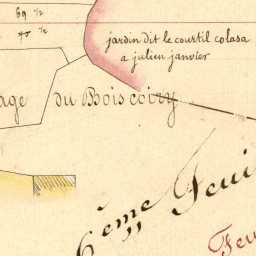 69 ½
40 ½
jardin dit le courtil colasa
a julien janvier
age du Boiscoiry
6ème Feui
Feu